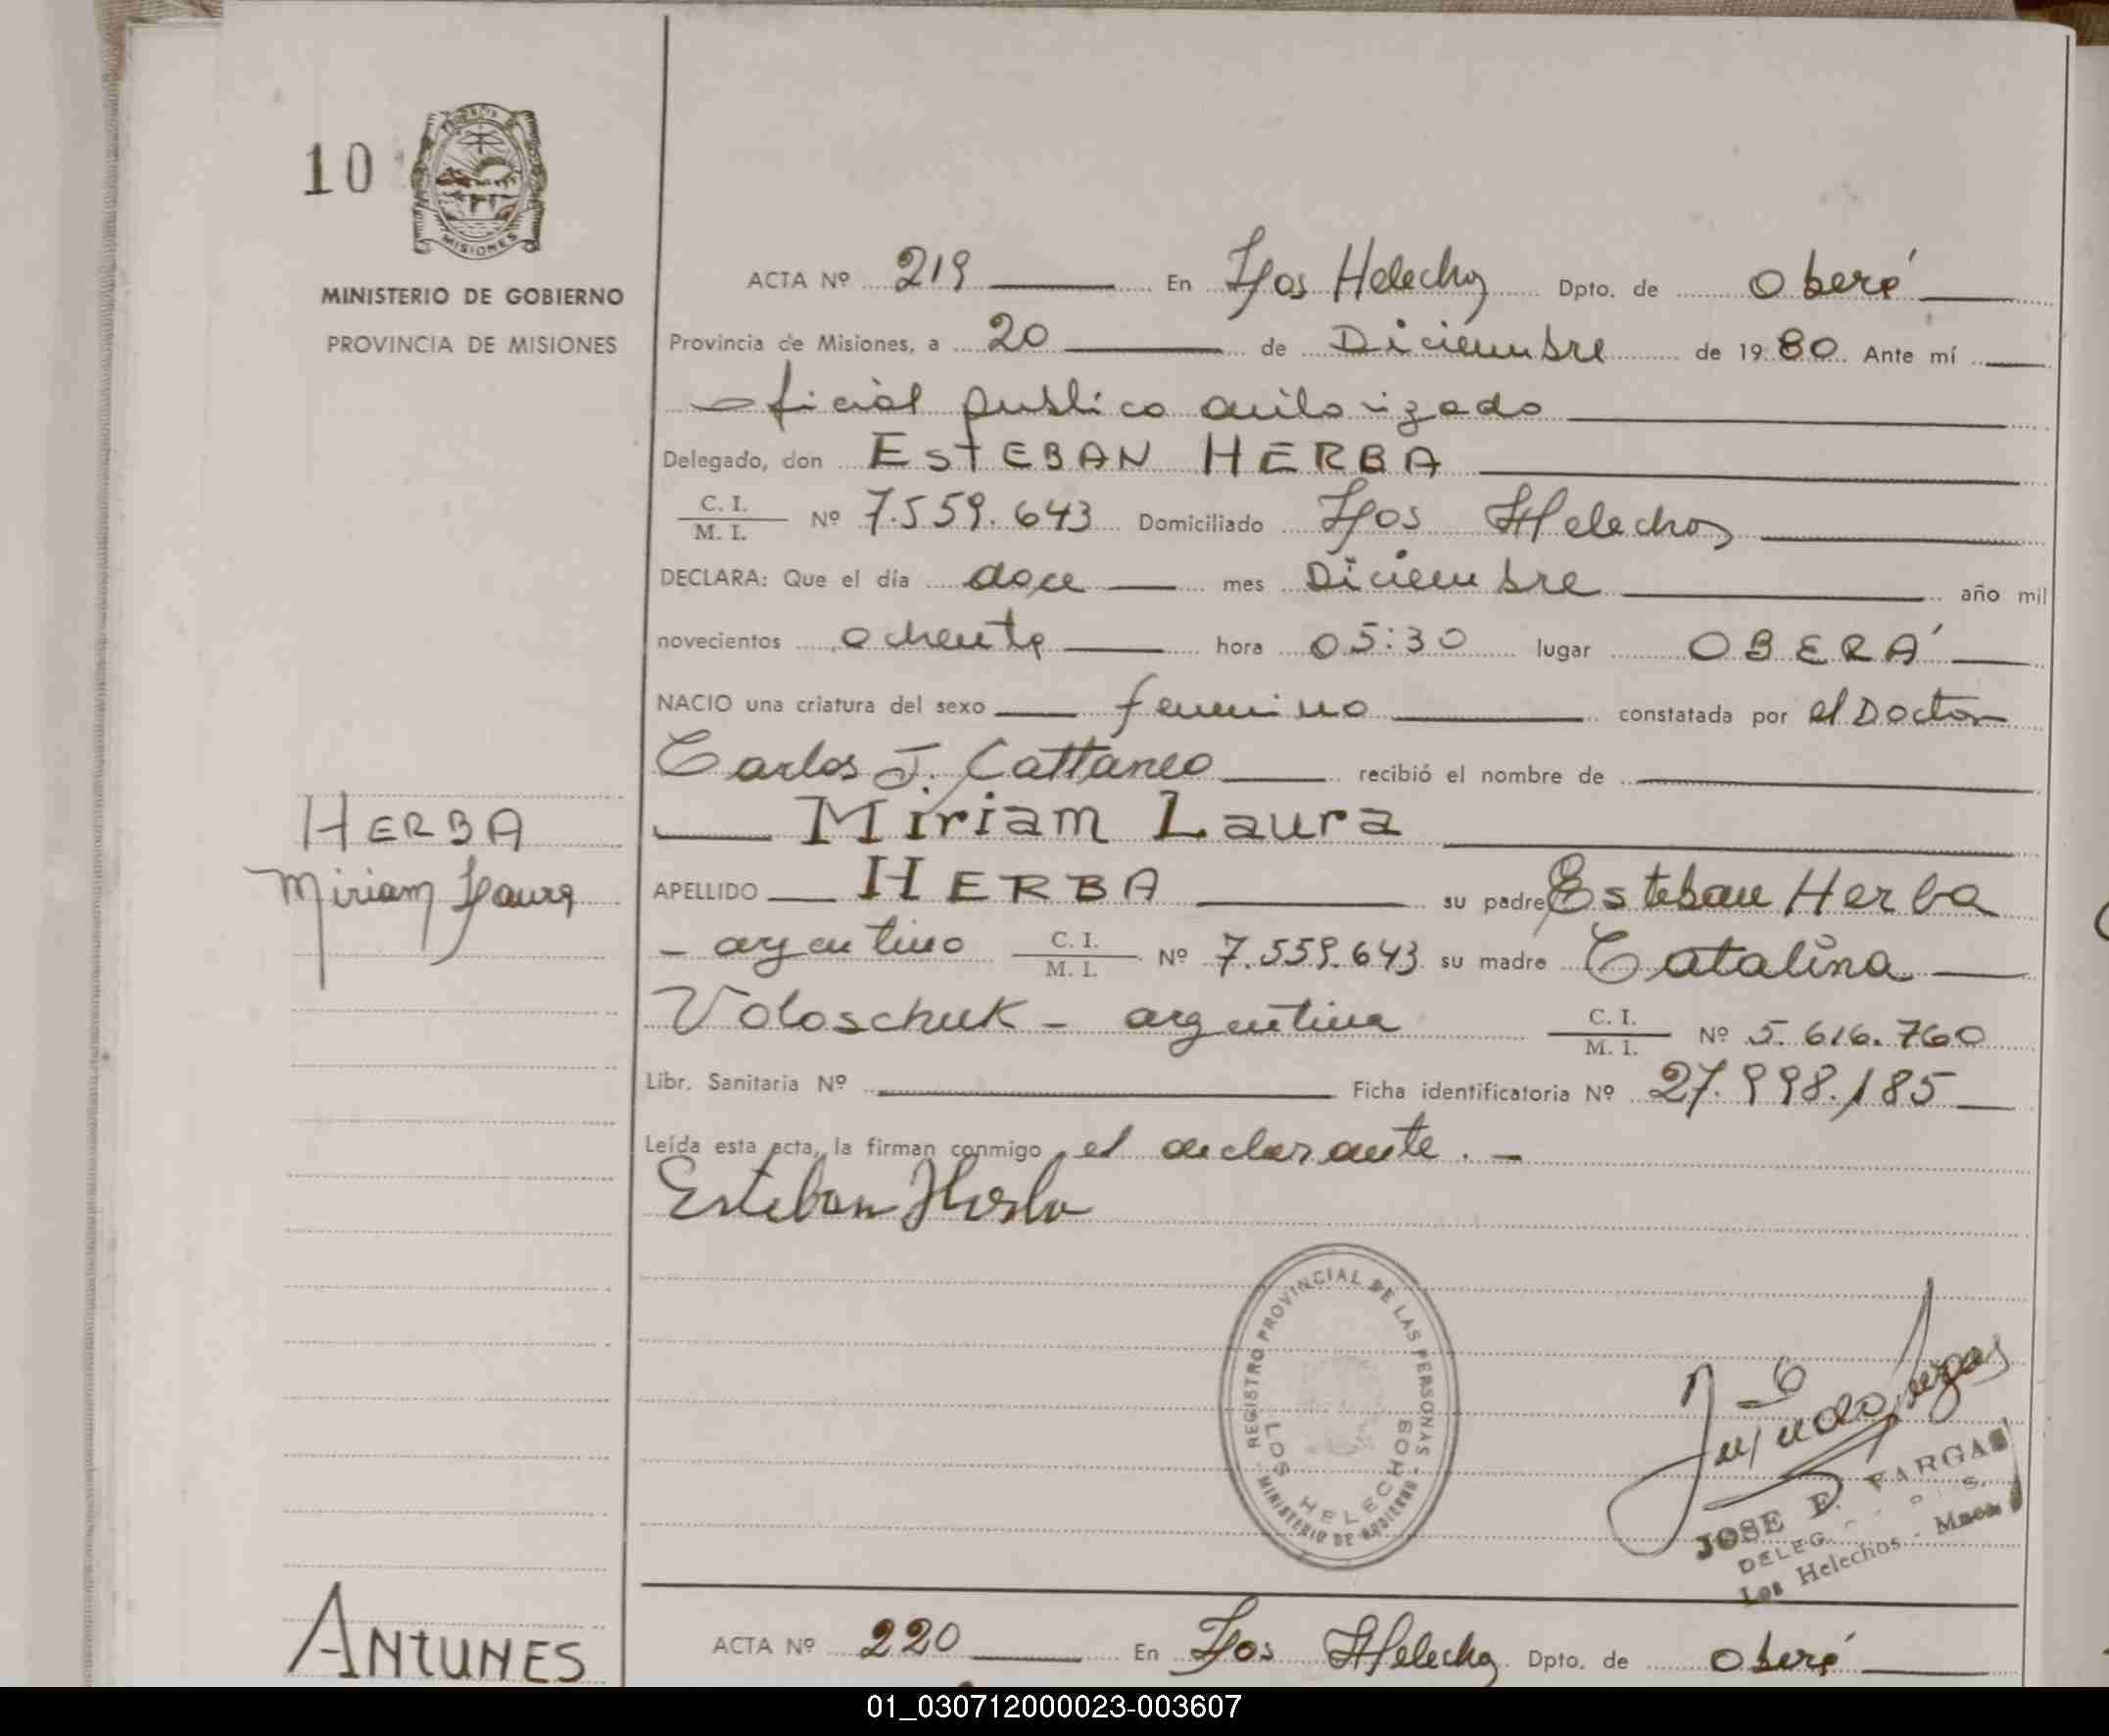 10
MISIONES
MINISTERIO DE GOBIERNO
PROVINCIA DE MISIONES
ACTA Nº 219 En Los Helechos Dpto. de Oberá
Provincia de Misiones, a 20 de Diciembre de 1980 Ante mí
oficial publico autorizado
Delegado, don ESTEBAN HERBA
C. I.
M. I. Nº 7.559.643 Domiciliado Los Helechos
DECLARA: Que el día doce mes Diciembre año mil
novecientos ochenta hora 05:30 lugar OBERÁ
NACIO una criatura del sexo femenino constatada por el Doctor
Carlos J. Cattaneo recibió el nombre de
Miriam Laura
APELLIDO HERBA su padre Esteban Herba
- argentino C. I.
M. I. Nº 7.559.643 su madre Catalina
Voloschuk - argentina C. I.
M. I. Nº 5.616.760
Libr. Sanitaria Nº Ficha identificatoria Nº 27.998.185
Leída esta acta, la firman conmigo el declarante. -
Esteban Herba
HERBA
Miriam Laura
REGISTRO PROVINCIAL DE LAS PERSONAS
MINISTERIO DE GOBIERNO
LOS HELECHOS
JOSE E. VARGAS
DELEG
Los Helechos - Mnes
ANTUNES
ACTA Nº 220 En Los Helechos Dpto. de Oberá
01_030712000023-003607